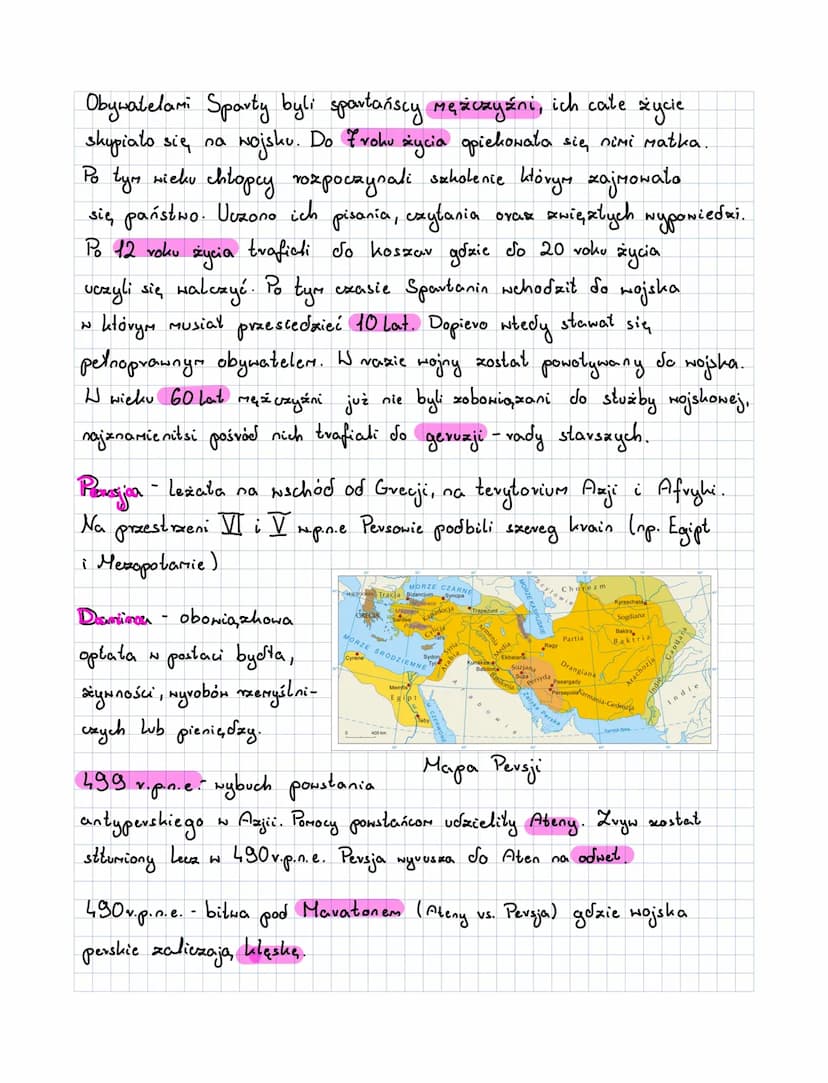 Obywatelami Sparty byli spartańscy mężczyźni, ich całe życie
skupiało się na wojsku. Do 7 roku życia opiekowała się nimi matka.
Po tym wieku chłopcy rozpoczynali szkolenie którym zajmowało
się państwo. Uczono ich pisania, czytania oraz zwięzłych wypowiedzi.
Po 12 roku życia trafiali do koszar gdzie do 20 roku życia
uczyli się walczyć. Po tym czasie Spartanin wchodził do wojska
w którym musiał przesiedzieć 10 lat. Dopiero wtedy stawał się
pełnoprawnym obywatelem. W razie wojny został powoływany do wojska.
W wieku 60 lat mężczyźni już nie byli zobowiązani do służby wojskowej,
najznamienitsi pośród nich trafiali do geruzji - rady starszych.
Persja - leżała na wschód od Grecji, na terytorium Azji i Afryki.
Na przestrzeni VI i V w.p.n.e Persowie podbili szereg krain (np. Egipt
i Mezopotamie)
MORZE CZARNE
Chorezm
Tracja
Bizancjum
Synopa
Trapezunt
MORZE KASPIJSKIE
Kyreschata
GRECJA
Sogdiana
Baktra
Baktria
Partia
Cylicja
Armenia
Media
Ragy
Ekbatana
MORZE ŚRÓDZIEMNE
Cyrena
Sydon
Tyr
Syria
Arabia
Kunaksa
Babilon
Babilonia
Suzjana
Suza
Persyda
Pasargady
Persepolis
Drangiana
Arachozja
Gandara
Karmania-Gedrozja
Indie
Memfis
Egipt
Teby
Arabowie
Zatoka Perska
0 400 km
Danina - obowiązkowa
opłata w postaci bydła,
żywności, wyrobów rzemyślni-
czych lub pieniędzy.
Mapa Persji
499 r.p.n.e.- wybuch powstania
antyperskiego w Azji. Pomocy powstańcom udzieliły Ateny. Zryw został
stłumiony lecz w 490 r.p.n.e. Persja wyrusza do Aten na odwet.
490 r.p.n.e. - bitwa pod Maratonem (Ateny vs. Persja) gdzie wojska
perskie zaliczają klęskę.